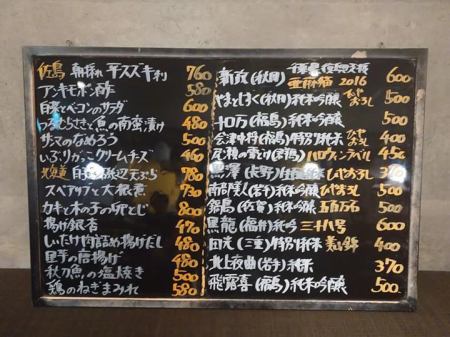 佐島 朝採れ 平スズキ刺 760
アンキモポン酢 580
白菜とベーコンのサラダ 600
魚の南蛮漬け 480
サンマのなめろう 500
いぶりがっこクリームチーズ 460
北海道 天ぷら 780
スペアリブと大根煮 730
カキと木の子の卵とじ 800
揚げ銀杏 470
しいたけ肉詰め揚げだし 480
里芋の唐揚げ 480
秋刀魚の塩焼き 500
鶏のねぎまみれ 580
新政(秋田) 亜麻猫 2016 600
やまとしずく(秋田)純米吟醸 ひやおろし 500
十ロ万(福島)純米吟醸 500
会津中将(福島)特別純米 ひやおろし 400
ハロウィンラベル 450
黒澤(長野) ひやおろし
南部美人(岩手)純米吟醸 ひやおろし 500
鍋島(佐賀)純米吟醸 五百万石 500
黒龍(福井)吟 三十八号 600
田光(三重)特別純米 美山錦 400
北上夜曲(岩手)純米 370
飛露喜(福島)純米吟醸 500